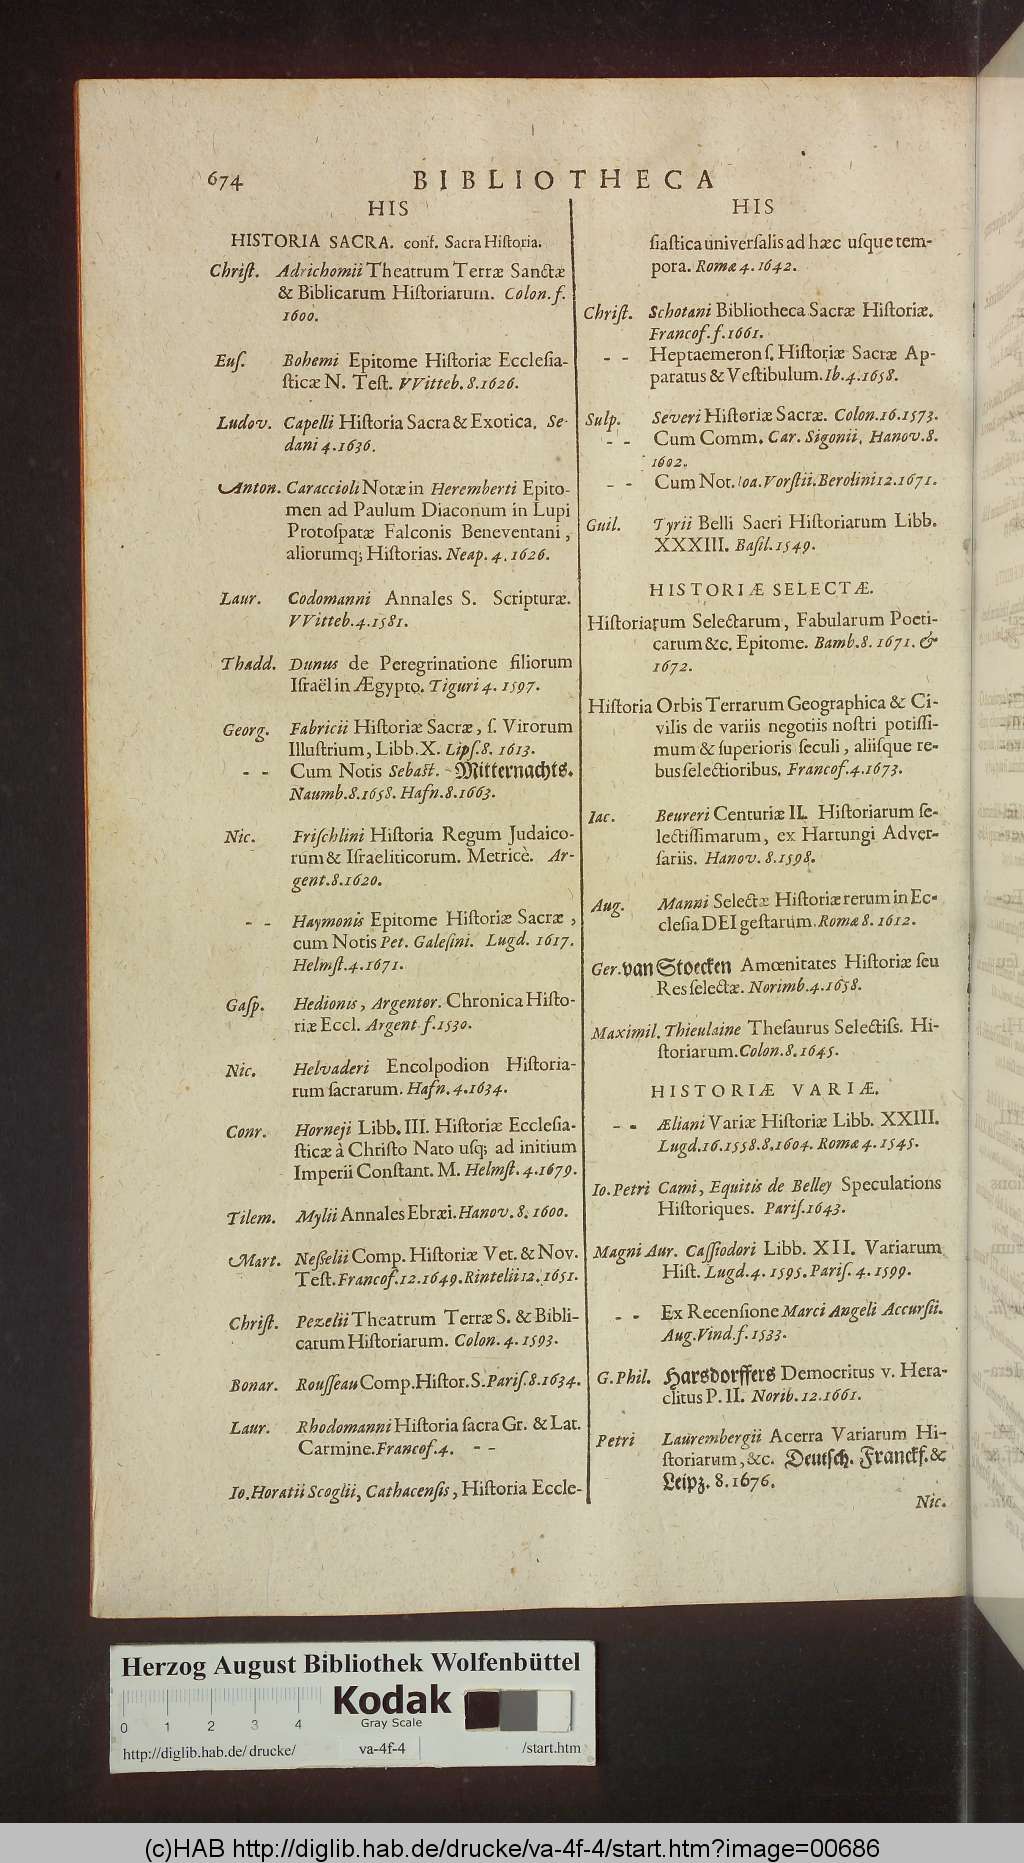 674
BIBLIOTHECA
HIS
HISTORIA SACRA. conf. Sacra Hiſtoria.
Chriſt. Adrichomii Theatrum Terræ Sanctæ
& Biblicarum Hiſtoriarum. Colon. f.
1600.
Euſ. Bohemi Epitome Hiſtoriæ Eccleſia-
ſticæ N. Teſt. VVitteb. 8. 1626.
Ludov. Capelli Hiſtoria Sacra & Exotica. Se-
dani 4. 1636.
Anton. Caraccioli Notæ in Heremberti Epito-
men ad Paulum Diaconum in Lupi
Protoſpatæ Falconis Beneventani,
aliorumq; Hiſtorias. Neap. 4. 1626.
Laur. Codomanni Annales S. Scripturæ.
VVitteb. 4. 1581.
Thadd. Dunus de Peregrinatione filiorum
Iſraël in Ægypto. Tiguri 4. 1597.
Georg. Fabricii Hiſtoriæ Sacræ, ſ. Virorum
Illuſtrium, Libb. X. Lipſ. 8. 1613.
- - Cum Notis Sebaſt. Mitternachts.
Naumb. 8. 1658. Hafn. 8. 1663.
Nic. Friſchlini Hiſtoria Regum Judaico-
rum & Iſraeliticorum. Metricè. Ar-
gent. 8. 1620.
- - Haymonis Epitome Hiſtoriæ Sacræ,
cum Notis Pet. Galeſini. Lugd. 1617.
Helmſt. 4. 1671.
Gaſp. Hedionis, Argentor. Chronica Hiſto-
riæ Eccl. Argent f. 1530.
Nic. Helvaderi Encolpodion Hiſtoria-
rum ſacrarum. Hafn. 4. 1634.
Conr. Horneji Libb. III. Hiſtoriæ Eccleſia-
ſticæ à Chriſto Nato uſq; ad initium
Imperii Conſtant. M. Helmſt. 4. 1679.
Tilem. Mylii Annales Ebræi. Hanov. 8. 1600.
Mart. Neßelii Comp. Hiſtoriæ Vet. & Nov.
Teſt. Francof. 12. 1649. Rintelii 12. 1651.
Chriſt. Pezelii Theatrum Terræ S. & Bibli-
carum Hiſtoriarum. Colon. 4. 1593.
Bonar. Rouſſeau Comp. Hiſtor. S. Pariſ. 8. 1634.
Laur. Rhodomanni Hiſtoria ſacra Gr. & Lat.
Carmine. Francof. 4. - -
Io. Horatii Scoglii, Cathacenſis, Hiſtoria Eccle-
HIS
ſiaſtica univerſalis ad hæc uſque tem-
pora. Romæ 4. 1642.
Chriſt. Schotani Bibliotheca Sacræ Hiſtoriæ.
Francof. f. 1661.
- - Heptaemeron ſ. Hiſtoriæ Sacræ Ap-
paratus & Veſtibulum. Ib. 4. 1658.
Sulp. Severi Hiſtoriæ Sacræ. Colon. 16. 1573.
- - Cum Comm. Car. Sigonii. Hanov. 8.
1602.
- - Cum Not. Ioa. Vorſtii. Berolini 12. 1671.
Guil. Tyrii Belli Sacri Hiſtoriarum Libb.
XXXIII. Baſil. 1549.
HISTORIÆ SELECTÆ.
Hiſtoriarum Selectarum, Fabularum Poeti-
carum &c. Epitome. Bamb. 8. 1671. &
1672.
Hiſtoria Orbis Terrarum Geographica & Ci-
vilis de variis negotiis noſtri potiſſi-
mum & ſuperioris ſeculi, aliiſque re-
bus ſelectioribus. Francof. 4. 1673.
Iac. Beureri Centuriæ II. Hiſtoriarum ſe-
lectiſſimarum, ex Hartungi Adver-
ſariis. Hanov. 8. 1598.
Aug. Manni Selectæ Hiſtoriæ rerum in Ec-
cleſia DEI geſtarum. Romæ 8. 1612.
Ger. van Stoecken Amœnitates Hiſtoriæ ſeu
Res ſelectæ. Norimb. 4. 1658.
Maximil. Thieulaine Theſaurus Selectiſs. Hi-
ſtoriarum. Colon. 8. 1645.
HISTORIÆ VARIÆ.
- - Æliani Variæ Hiſtoriæ Libb. XXIII.
Lugd. 16. 1558. 8. 1604. Romæ 4. 1545.
Io. Petri Cami, Equitis de Belley Speculations
Hiſtoriques. Pariſ. 1643.
Magni Aur. Caſſiodori Libb. XII. Variarum
Hiſt. Lugd. 4. 1595. Pariſ. 4. 1599.
- - Ex Recenſione Marci Angeli Accurſii.
Aug. Vind. f. 1533.
G. Phil. Harsdorffers Democritus v. Hera-
clitus P. II. Norib. 12. 1661.
Petri Laurembergii Acerra Variarum Hi-
ſtoriarum, &c. Deutſch. Franckf. &
Leipz. 8. 1676.
Nic.
Herzog August Bibliothek Wolfenbüttel
Kodak
Gray Scale
0 1 2 3 4
http://diglib.hab.de/drucke/ va-4f-4 /start.htm
(c)HAB http://diglib.hab.de/drucke/va-4f-4/start.htm?image=00686